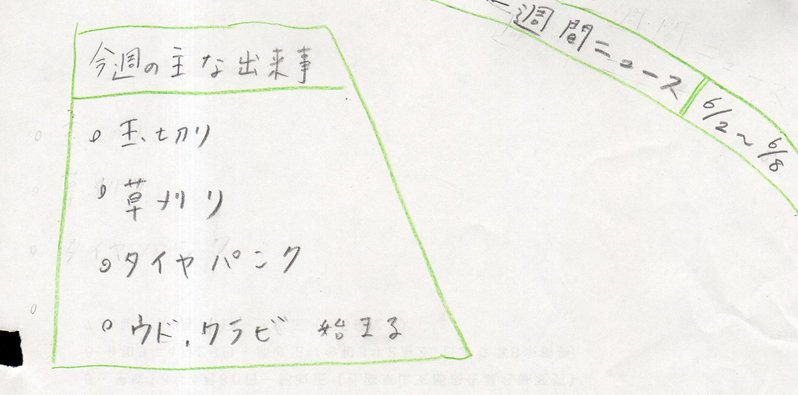 一週間ニュース 6/2〜6/8
今週の主な出来事
○ 玉切り
○ 草刈り
○ タイヤパンク
○ ウド、ワラビ 始まる